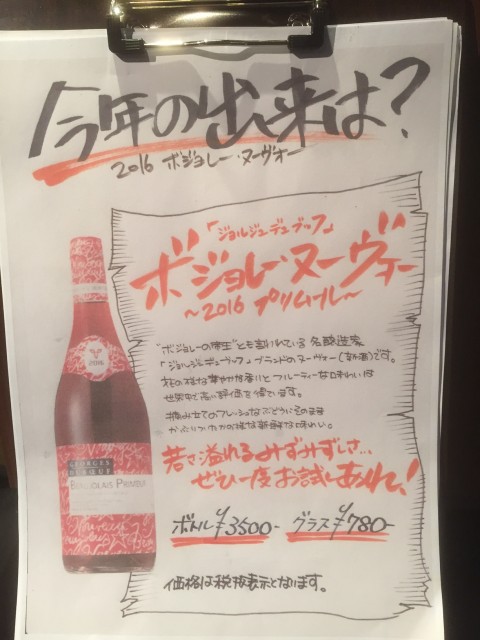 今年の出来は?
2016 ボジョレー・ヌーヴォー
「ジョルジュデュブッフ」
ボジョレー・ヌーヴォー
～2016 プリムール～
"ボジョレーの帝王"とも言われている 名醸造家
「ジョルジュデュブッフ」ブランドのヌーヴォー(新酒)です。
花の様な華やかな香りと フルーティーな味わいは
世界中で高い評価を得ています。
摘み立てのフレッシュなぶどうをそのまま
かぶりついたかの様な新鮮な味わい。
若さ溢れるみずみずしさ…
ぜひ一度お試しあれ!
ボトル ¥3500- グラス ¥780-
価格は税抜表示となります。
2016
GEORGES
DUBŒUF
BEAUJOLAIS PRIMEUR